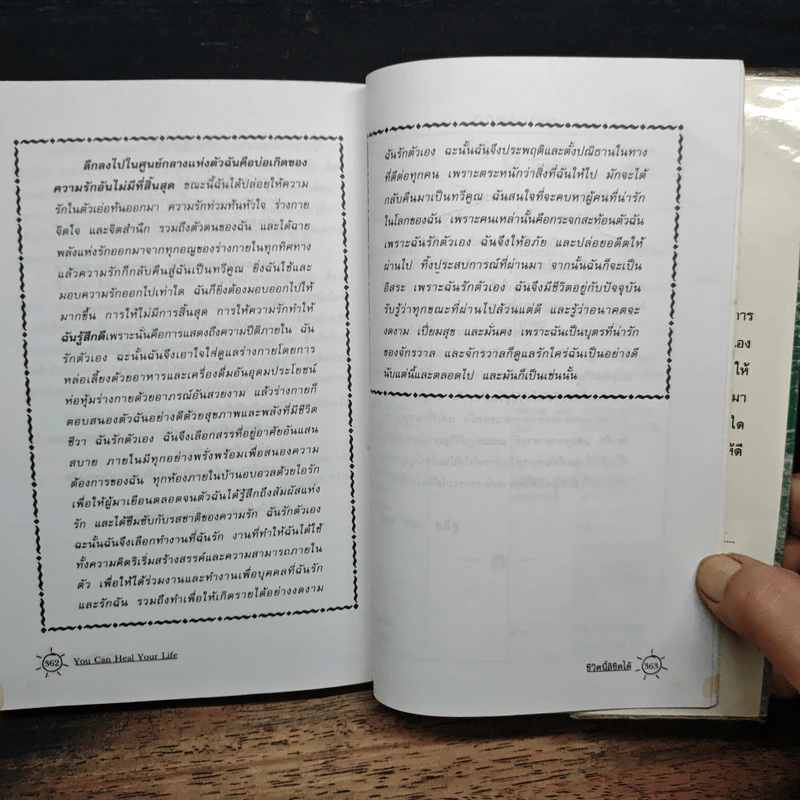 ลึกลงไปในศูนย์กลางแห่งตัวฉันคือบ่อเกิดของ
ความรักอันไม่มีที่สิ้นสุด ขณะนี้ฉันได้ปล่อยให้ความ
รักในตัวเอ่อท้นออกมา ความรักท่วมท้นหัวใจ ร่างกาย
จิตใจ และจิตสำนึก รวมถึงตัวตนของฉัน และได้ฉาย
พลังแห่งรักออกมาจากทุกอณูของร่างกายในทุกทิศทาง
แล้วความรักก็กลับคืนสู่ฉันเป็นทวีคูณ ยิ่งฉันใช้และ
มอบความรักออกไปเท่าใด ฉันก็ยิ่งต้องมอบออกไปให้
มากขึ้น การให้ไม่มีการสิ้นสุด การให้ความรักทำให้
ฉันรู้สึกดีเพราะนั่นคือการแสดงถึงความปีติภายใน ฉัน
รักตัวเอง ฉะนั้นฉันจึงเอาใจใส่ดูแลร่างกายโดยการ
หล่อเลี้ยงด้วยอาหารและเครื่องดื่มอันอุดมประโยชน์
ห่อหุ้มร่างกายด้วยอาภรณ์อันสวยงาม แล้วร่างกายก็
ตอบสนองตัวฉันอย่างดีด้วยสุขภาพและพลังที่มีชีวิต
ชีวา ฉันรักตัวเอง ฉันจึงเลือกสรรที่อยู่อาศัยอันแสน
สบาย ภายในมีทุกอย่างพรั่งพร้อมเพื่อสนองความ
ต้องการของฉัน ทุกห้องภายในบ้านอบอวลด้วยไอรัก
เพื่อให้ผู้มาเยือนตลอดจนตัวฉันได้รู้สึกถึงสัมผัสแห่ง
รัก และได้ซึมซับกับรสชาติของความรัก ฉันรักตัวเอง
ฉะนั้นฉันจึงเลือกทำงานที่ฉันรัก งานที่ทำให้ฉันได้ใช้
ทั้งความคิดริเริ่มสร้างสรรค์และความสามารถภายใน
ตัว เพื่อให้ได้ร่วมงานและทำงานเพื่อบุคคลที่ฉันรัก
และรักฉัน รวมถึงทำเพื่อให้เกิดรายได้อย่างงดงาม
362 You Can Heal Your Life
ฉันรักตัวเอง ฉะนั้นฉันจึงประพฤติและตั้งปณิธานในทาง
ที่ดีต่อทุกคน เพราะตระหนักว่าสิ่งที่ฉันให้ไป มักจะได้
กลับคืนมาเป็นทวีคูณ ฉันสนใจที่จะคบหาผู้คนที่น่ารัก
ในโลกของฉัน เพราะคนเหล่านั้นคือกระจกสะท้อนตัวฉัน
เพราะฉันรักตัวเอง ฉันจึงให้อภัย และปล่อยอดีตให้
ผ่านไป ทิ้งประสบการณ์ที่ผ่านมา จากนั้นฉันก็จะเป็น
อิสระ เพราะฉันรักตัวเอง ฉันจึงมีชีวิตอยู่กับปัจจุบัน
รับรู้ว่าทุกขณะที่ผ่านไปล้วนแต่ดี และรู้ว่าอนาคตจะ
งดงาม เปี่ยมสุข และมั่นคง เพราะฉันเป็นบุตรที่น่ารัก
ของจักรวาล และจักรวาลก็ดูแลรักใคร่ฉันเป็นอย่างดี
นับแต่นี้และตลอดไป และมันก็เป็นเช่นนั้น
ชีวิตนี้ลิขิตได้ 363
การ
เอง
ให้
มา
ใด
ให้ดี